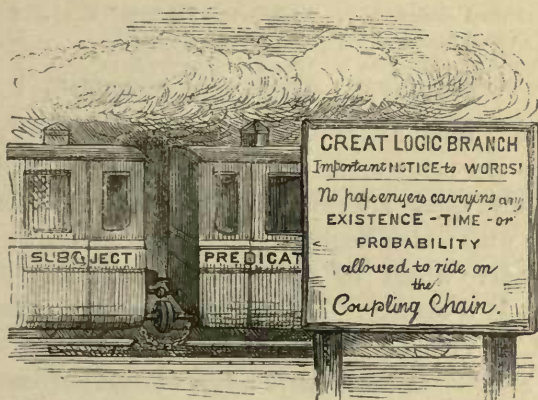 SUBJECT
PREDICAT
GREAT LOGIC BRANCH
Important NOTICE to WORDS'
No passengers carrying any
EXISTENCE - TIME - or
PROBABILITY
allowed to ride on
the
Coupling Chain.